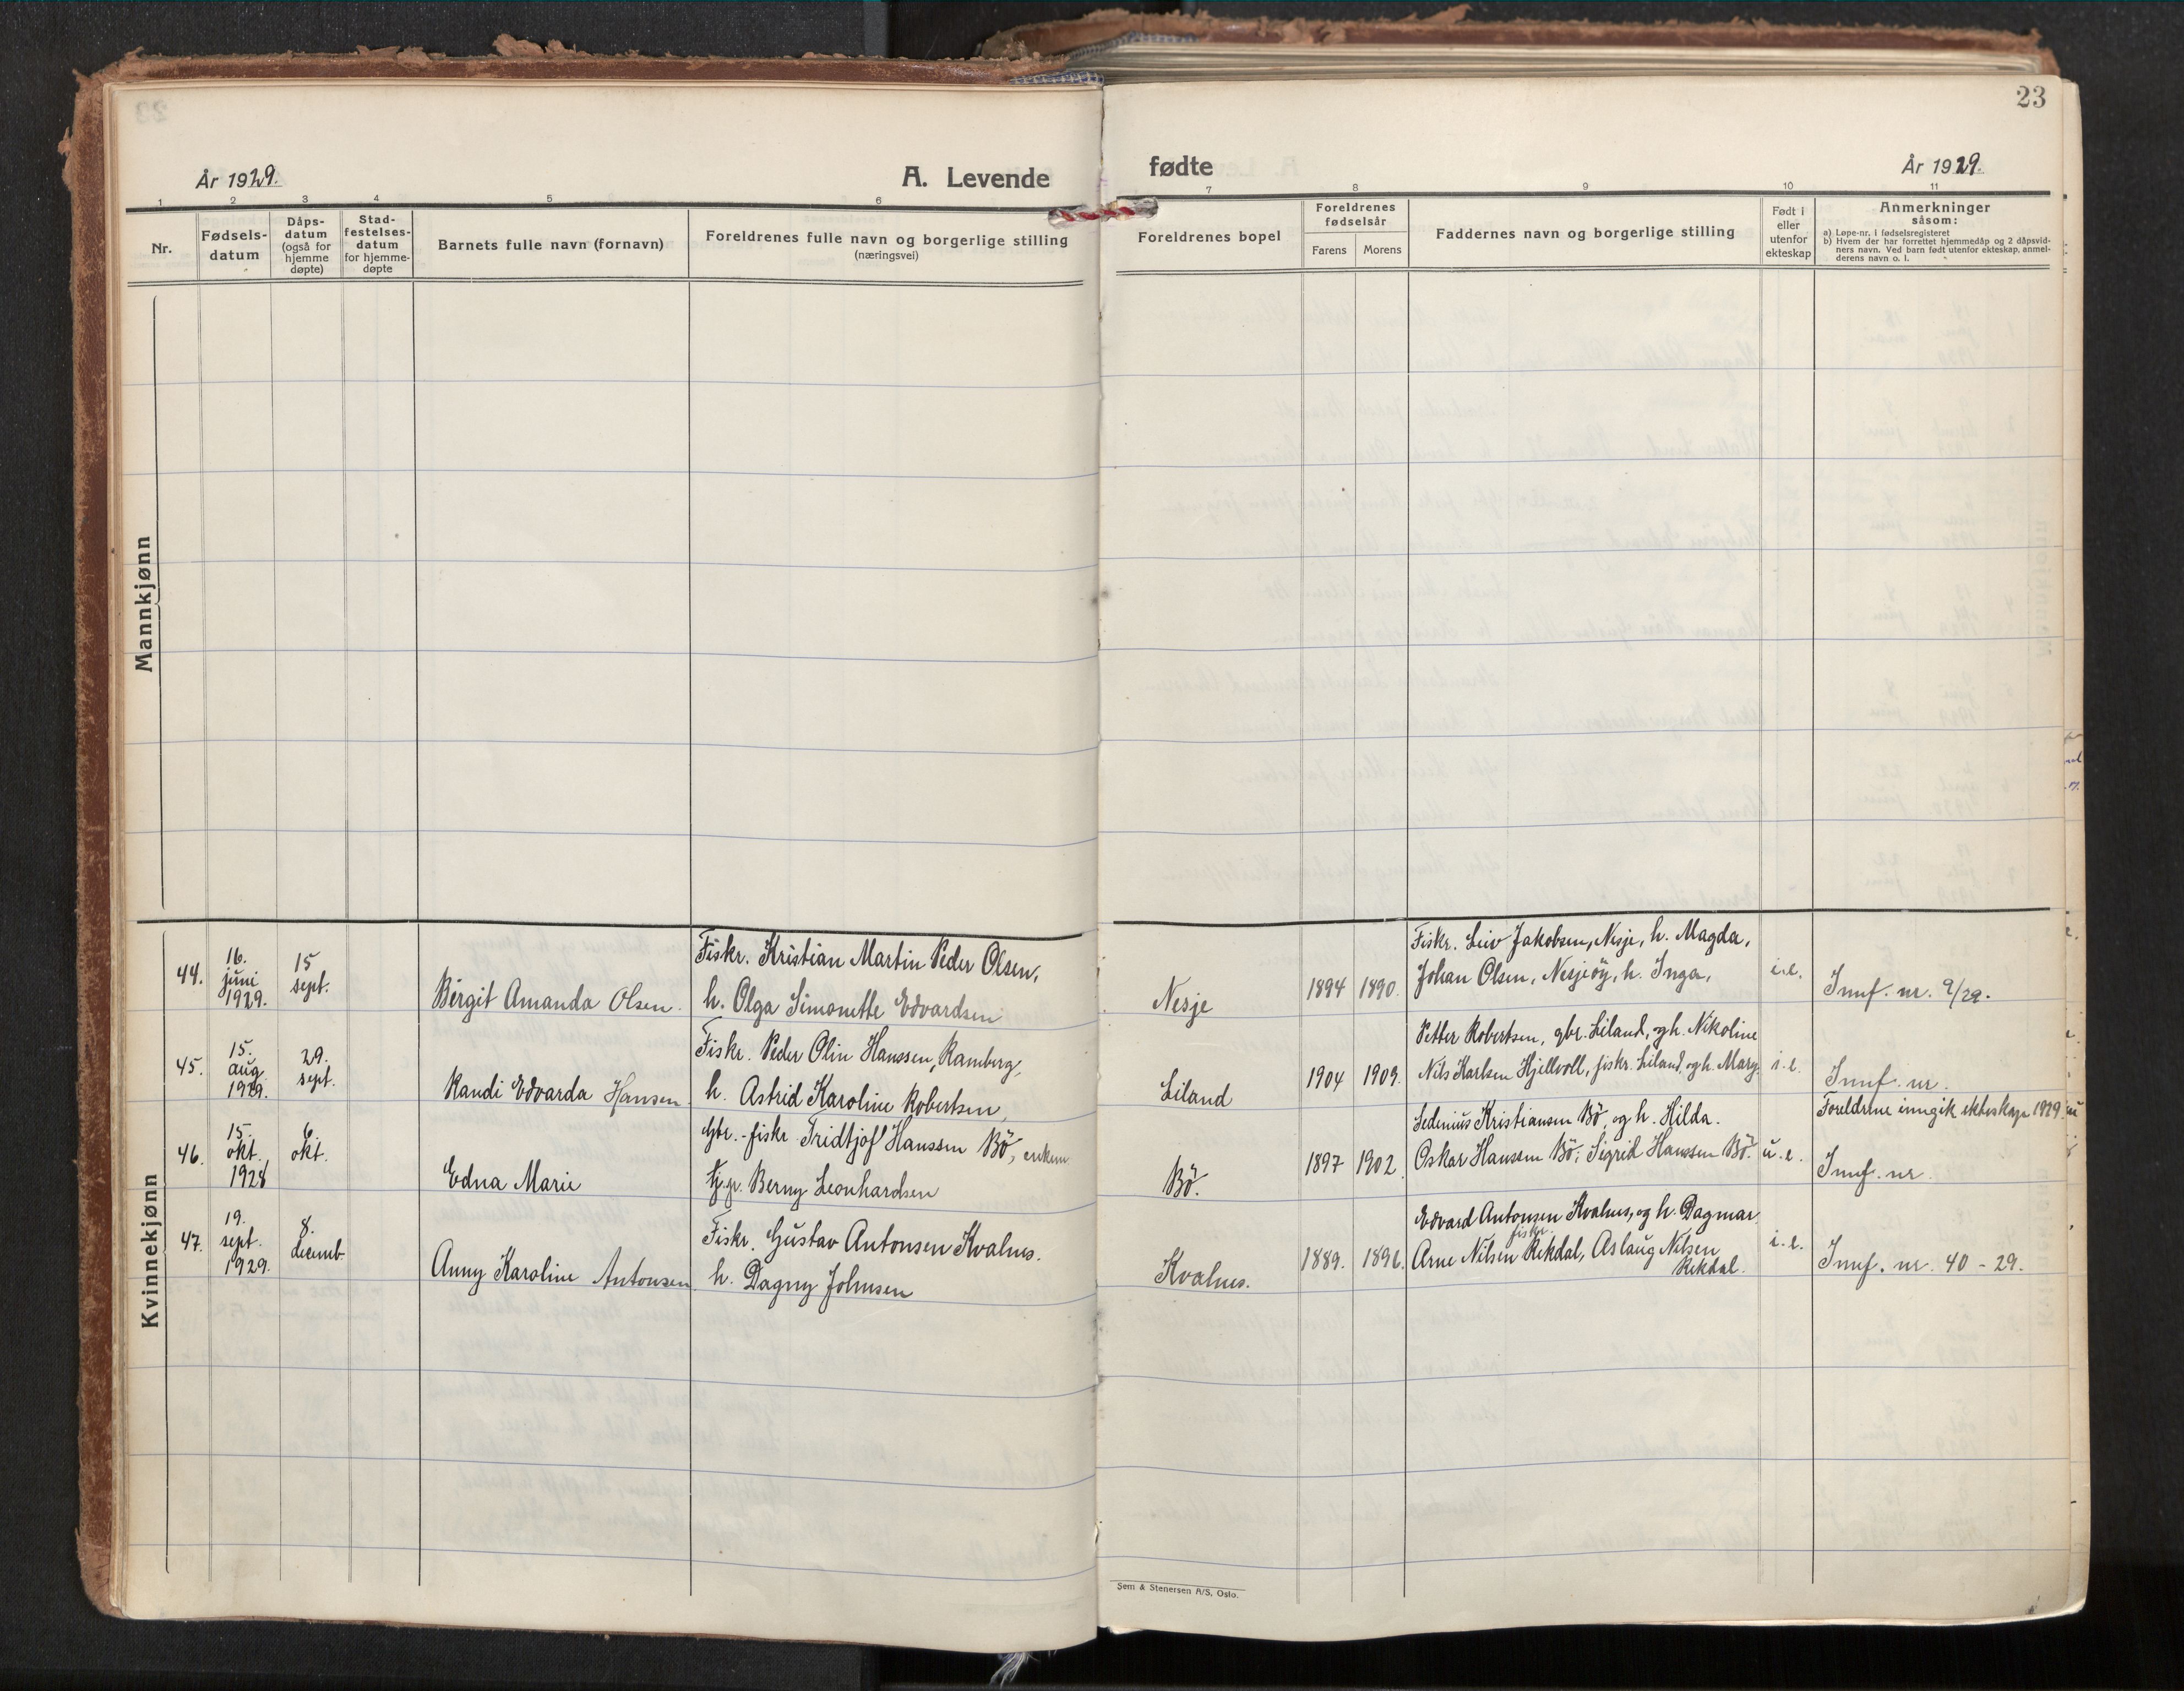 23
År 1929.
A. Levende
fødte
År 1929.
1 2 3 4 5 6 7 8 9 10 11
Nr.
Fødsels-
datum
Dåps-
datum
(også for
hjemme
døpte)
Stad-
festelses-
datum
for hjemme-
døpte
Barnets fulle navn (fornavn)
Foreldrenes fulle navn og borgerlige stilling
(næringsvei)
Foreldrenes bopel
Foreldrenes
fødselsår
Farens
Morens
Faddernes navn og borgerlige stilling
Født i
eller
utenfor
ekteskap
Anmerkninger
såsom:
a) Løpe-nr. i fødselsregisteret
b) Hvem der har forrettet hjemmedåp og 2 dåpsvid-
ners navn. Ved barn født utenfor ekteskap, anmel-
derens navn o. l.
Mannkjønn
Kvinnekjønn
44.
16.
juni
1929.
15
sept.
Birgit Amanda Olsen.
Fiskr. Kristian Martin Peder Olsen,
h. Olga Simonette Edvardsen
Nesje
1894
1890.
Fiskr. Leiv Jakobsen, Nesje, h. Magda,
Johan Olsen, Nesjeöy, h. Inga,
i.e.
Innf. nr. 9/29.
45.
15.
aug
1929.
29.
sept.
Randi Edvarda Hansen
Fiskr. Peder Olin Hanssen, Ramberg,
h. Astrid Karoline Robertsen,
Leiland
1904
1909.
Petter Robertsen, gbr. Leiland, og h. Nikoline
Nils Karlsen Hjellvoll, fiskr. Leiland, og h. Mary.
i.e.
Innf. nr.
Foreldrene inngik ekteskap 1929
46.
15.
okt.
1928
6.
okt.
Edna Marie
Gbr.-fiskr Fridtjof Hanssen Bö, enkem.
tj.p. Berny Leonhardsen
Bö.
1897
1902.
Sedenius Kristiansen Bö, og h. Hilda.
Oskar Hanssen Bö; Sigrid Hanssen Bö.
u.e.
Innf. nr.
47.
19.
sept.
1929.
8.
decemb.
Anny Karoline Antonsen
Fiskr. Gustav Antonsen Kvalnes.
h. Dagny Johnsen
Kvalnes.
1889.
1896.
Edvard Antonsen Kvalnes, og h. Dagmar.
fiskr.
Arne Nilsen Rekdal, Aslaug Nilsen
Rekdal.
i.e.
Innf. nr. 40 - 29.
Sem & Stenersen A/S, Oslo.